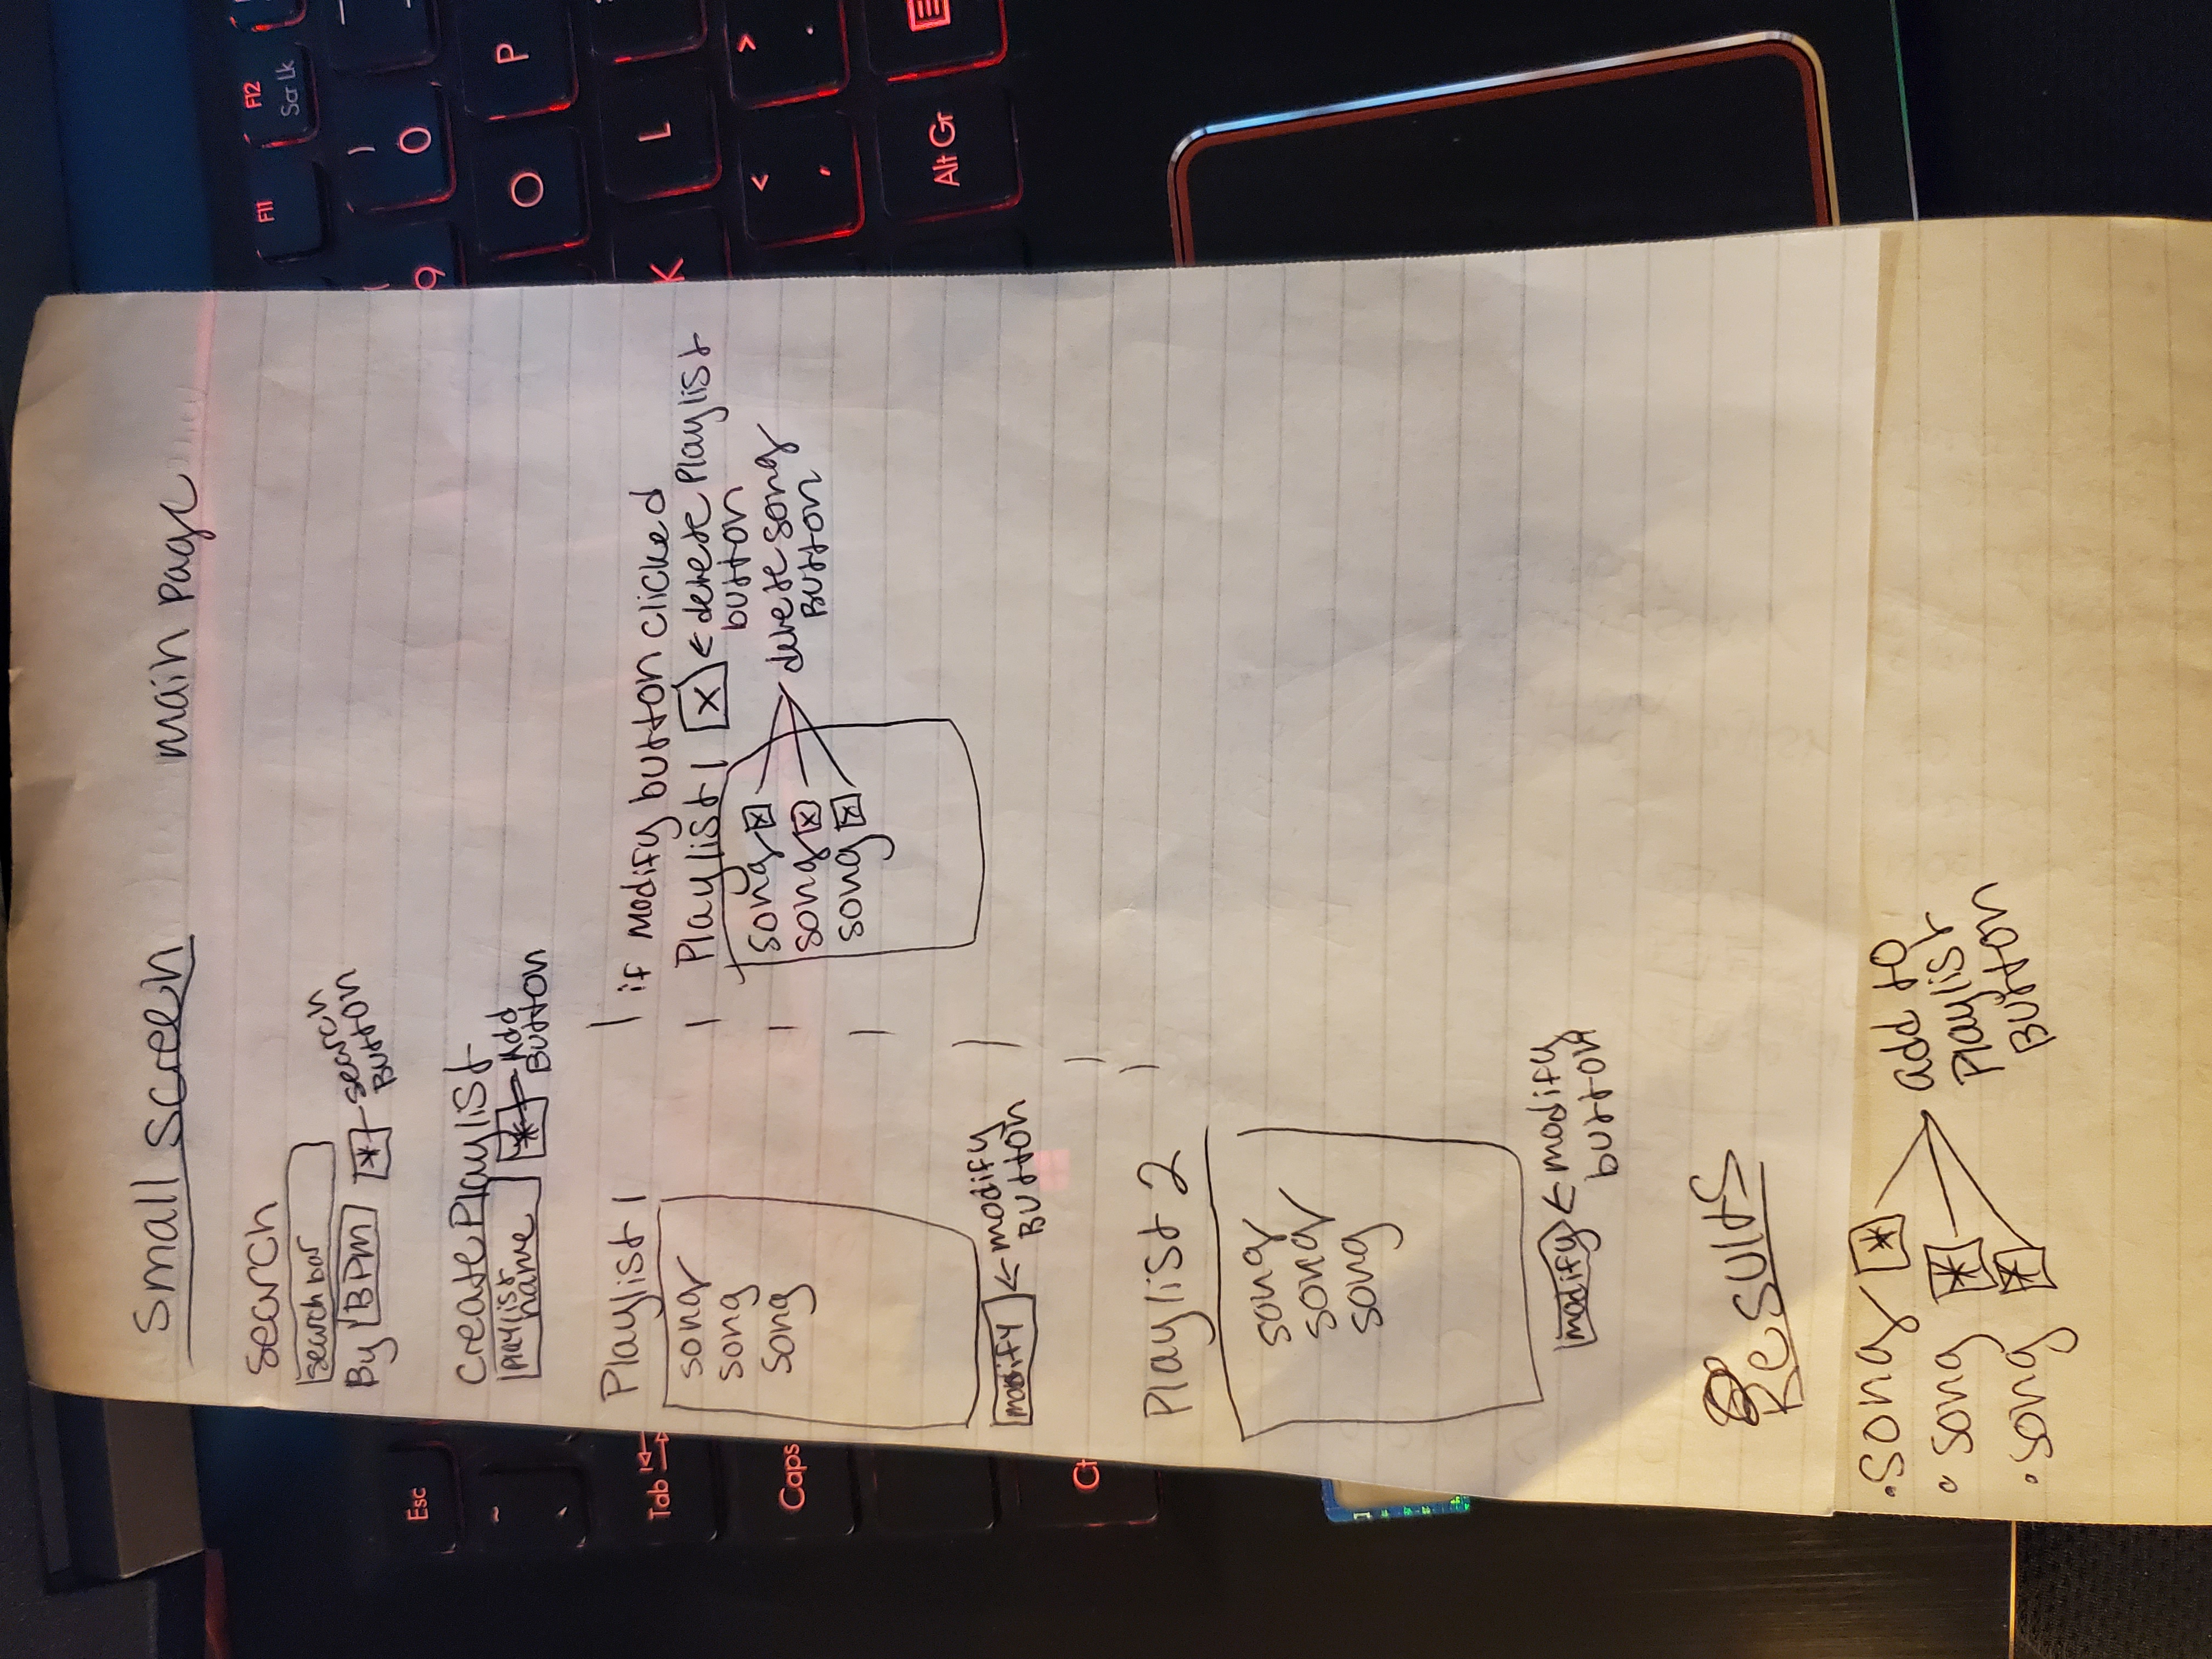 small screen
main page
search
search bar
By BPM * search
Button
create Playlist
Playlist
name
* Add
Button
Playlist 1
song
song
song
modify ← modify
Button
if modify button clicked
Playlist 1 X ← delete Playlist
button
song x
song x
song x
delete song
Button
Playlist 2
song
song
song
modify ← modify
button
Results
• song *
• song *
• song *
add to
Playlist
Button
Esc
~
`
Tab
Caps
Ct
F11
F12
Scr Lk
(
9
)
0
O
P
K
L
<
,
>
.
Alt Gr